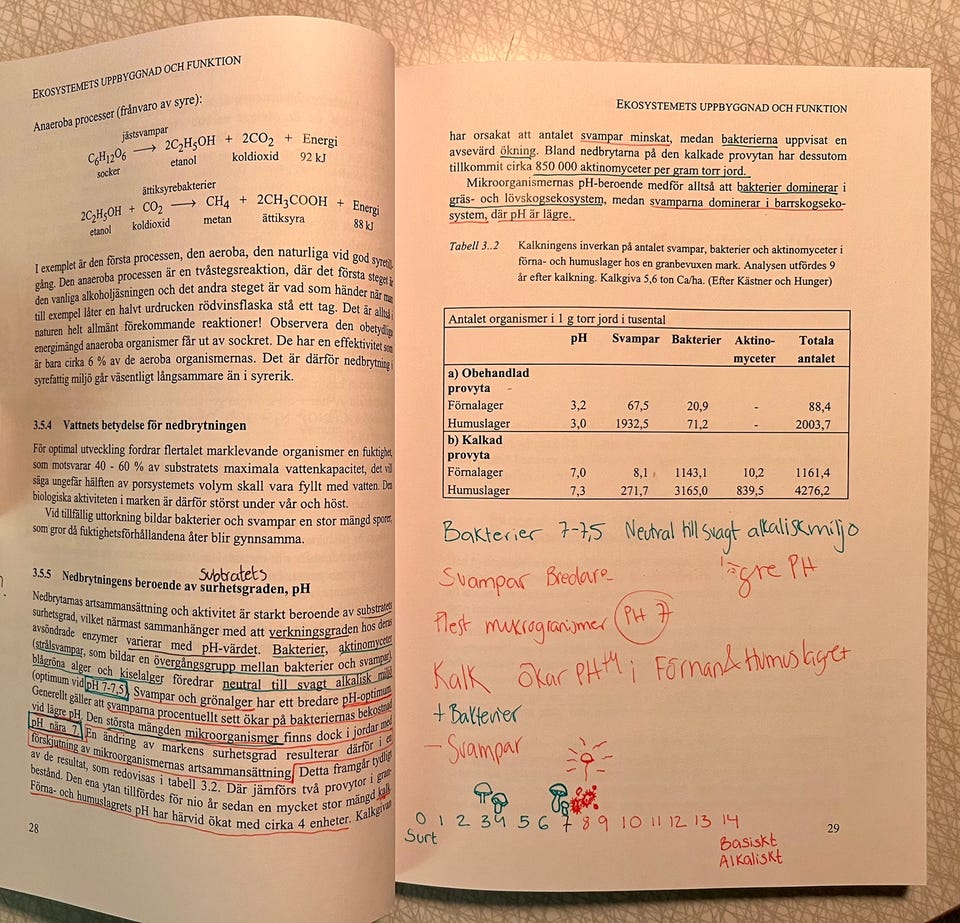 EKOSYSTEMETS UPPBYGGNAD OCH FUNKTION
Anaeroba processer (frånvaro av syre):
jästsvampar
C₆H₁₂O₆ ⟶ 2C₂H₅OH + 2CO₂ + Energi
socker etanol koldioxid 92 kJ
ättiksyrebakterier
2C₂H₅OH + CO₂ ⟶ CH₄ + 2CH₃COOH + Energi
etanol koldioxid metan ättiksyra 88 kJ
I exemplet är den första processen, den aeroba, den naturliga vid god syretill-
gång. Den anaeroba processen är en tvåstegsreaktion, där det första steget är
den vanliga alkoholjäsningen och det andra steget är vad som händer när man
till exempel låter en halvt urdrucken rödvinsflaska stå ett tag. Det är alltså i
naturen helt allmänt förekommande reaktioner! Observera den obetydliga
energimängd anaeroba organismer får ut av sockret. De har en effektivitet som
är bara cirka 6 % av de aeroba organismernas. Det är därför nedbrytning i
syrefattig miljö går väsentligt långsammare än i syrerik.
3.5.4 Vattnets betydelse för nedbrytningen
För optimal utveckling fordrar flertalet marklevande organismer en fuktighet,
som motsvarar 40 - 60 % av substratets maximala vattenkapacitet, det vill
säga ungefär hälften av porsystemets volym skall vara fylld med vatten. Den
biologiska aktiviteten i marken är därför störst under vår och höst.
Vid tillfällig uttorkning bildar bakterier och svampar en stor mängd sporer,
som gror då fuktighetsförhållandena åter blir gynnsamma.
Subtratets
3.5.5 Nedbrytningens beroende av surhetsgraden, pH
Nedbrytarnas artsammansättning och aktivitet är starkt beroende av substratets
surhetsgrad, vilket närmast sammanhänger med att verkningsgraden hos deras
avsöndrade enzymer varierar med pH-värdet. Bakterier, aktinomyceter
(strålsvampar, som bildar en övergångsgrupp mellan bakterier och svampar),
blågröna alger och kiselalger föredrar neutral till svagt alkalisk miljö
(optimum vid pH 7-7,5). Svampar och grönalger har ett bredare pH-optimum.
Generellt gäller att svamparna procentuellt sett ökar på bakteriernas bekostnad
vid lägre pH. Den största mängden mikroorganismer finns dock i jordar med
pH nära 7. En ändring av markens surhetsgrad resulterar därför i en
förskjutning av mikroorganismernas artsammansättning. Detta framgår tydligt
av de resultat, som redovisas i tabell 3.2. Där jämförs två provytor i gran-
bestånd. Den ena ytan tillfördes för nio år sedan en mycket stor mängd kalk.
Förna- och humuslagrets pH har härvid ökat med cirka 4 enheter. Kalkgivan
28
EKOSYSTEMETS UPPBYGGNAD OCH FUNKTION
har orsakat att antalet svampar minskat, medan bakterierna uppvisat en
avsevärd ökning. Bland nedbrytarna på den kalkade provytan har dessutom
tillkommit cirka 850 000 aktinomyceter per gram torr jord.
Mikroorganismernas pH-beroende medför alltså att bakterier dominerar i
gräs- och lövskogsekosystem, medan svamparna dominerar i barrskogseko-
system, där pH är lägre.
Tabell 3..2 Kalkningens inverkan på antalet svampar, bakterier och aktinomyceter i
förna- och humuslager hos en granbevuxen mark. Analysen utfördes 9
år efter kalkning. Kalkgiva 5,6 ton Ca/ha. (Efter Kästner och Hunger)
Antalet organismer i 1 g torr jord i tusental
pH Svampar Bakterier Aktino- Totala
myceter antalet
a) Obehandlad
provyta
Förnalager 3,2 67,5 20,9 - 88,4
Humuslager 3,0 1932,5 71,2 - 2003,7
b) Kalkad
provyta
Förnalager 7,0 8,1 1143,1 10,2 1161,4
Humuslager 7,3 271,7 3165,0 839,5 4276,2
Bakterier 7-7,5 Neutral till svagt alkalisk miljo
Svampar Bredare lägre PH
Flest mukrogranismer PH 7
Kalk ökar PH+4 i Förnan & Humuslagret
+ Bakterier
- Svampar
0 1 2 3 4 5 6 7 8 9 10 11 12 13 14
Surt
Basiskt
Alkaliskt
29